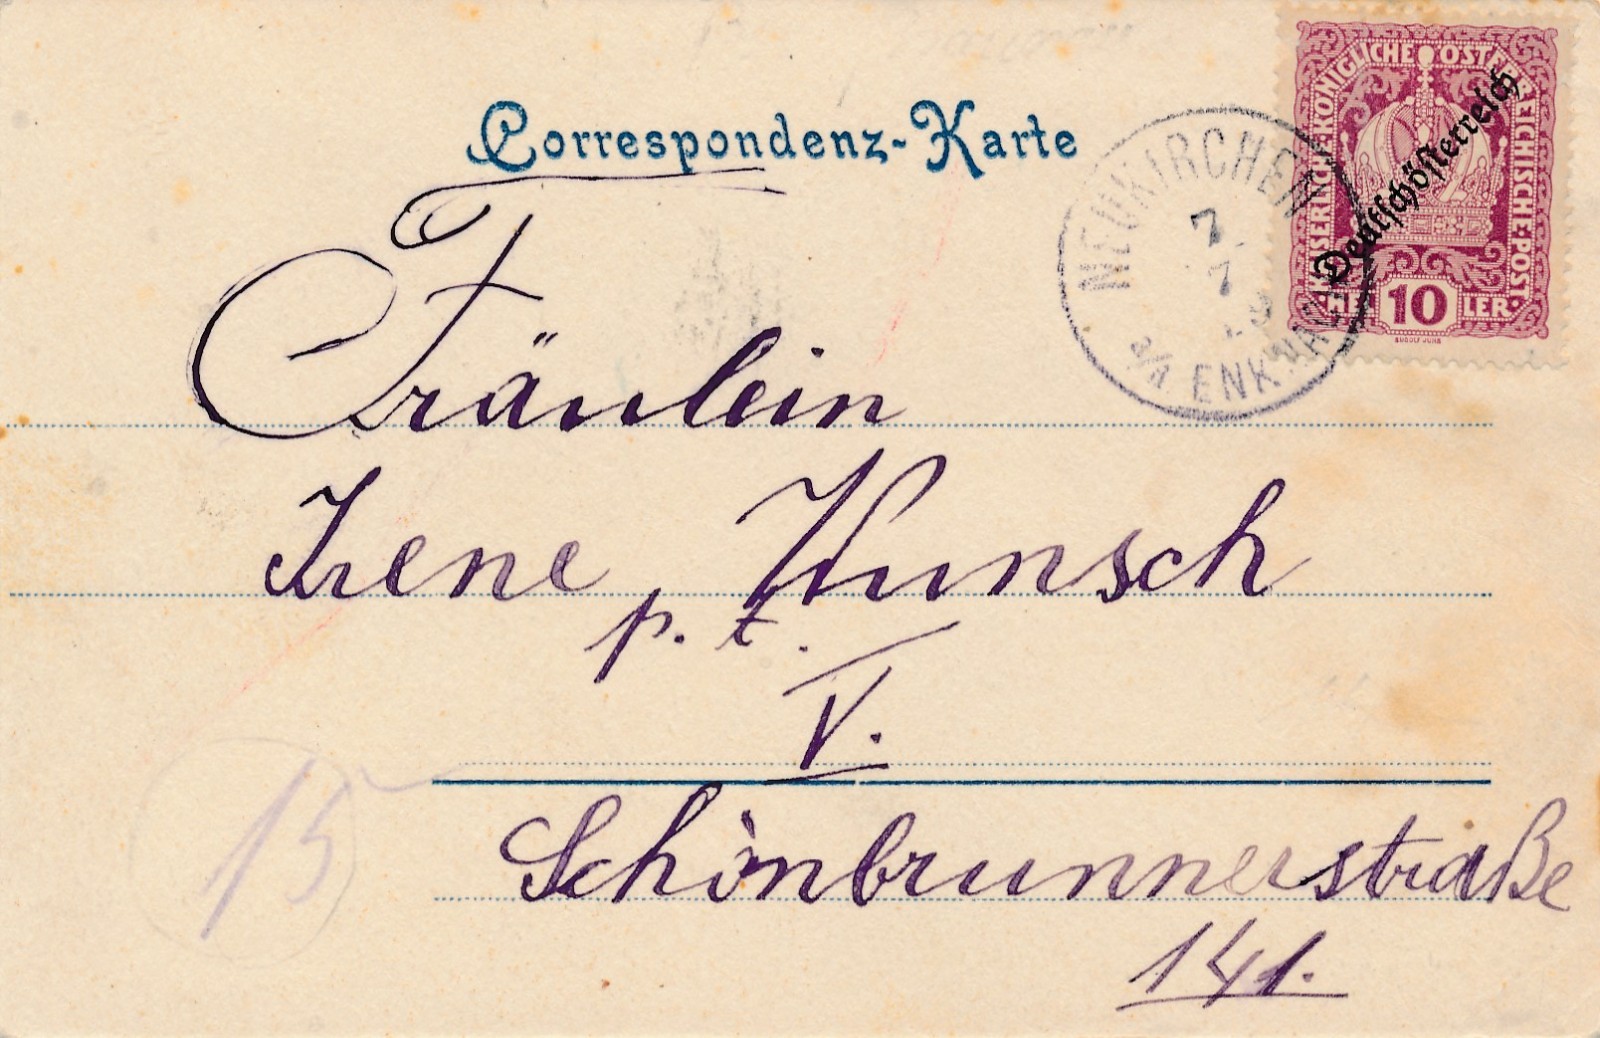 Correspondenz-Karte
KAISERLICH·KÖNIGLICHE ÖSTERREICHISCHE·POST·
Deutschösterreich
HELLER
10
RUDOLF JUNK
NEUKIRCHEN
7.
7
a/d ENKNACH
Fräulein
Irene Wunsch
p. t.
V.
15
Schönbrunnerstraße
141.